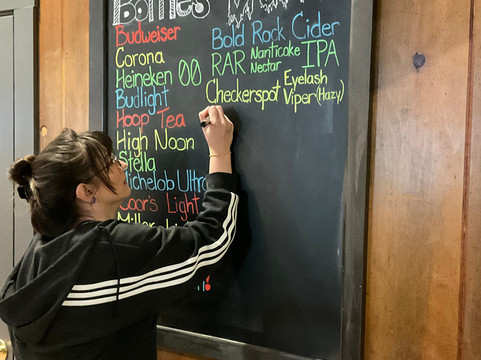 Bottles
Budweiser
Corona
Heineken 00
Budlight
Hoop Tea
High Noon
Stella
Michelob Ultra
Coor's Light
Miller
Bold Rock Cider
RAR Nanticoke Nectar IPA
Checkerspot Eyelash Viper (Hazy)